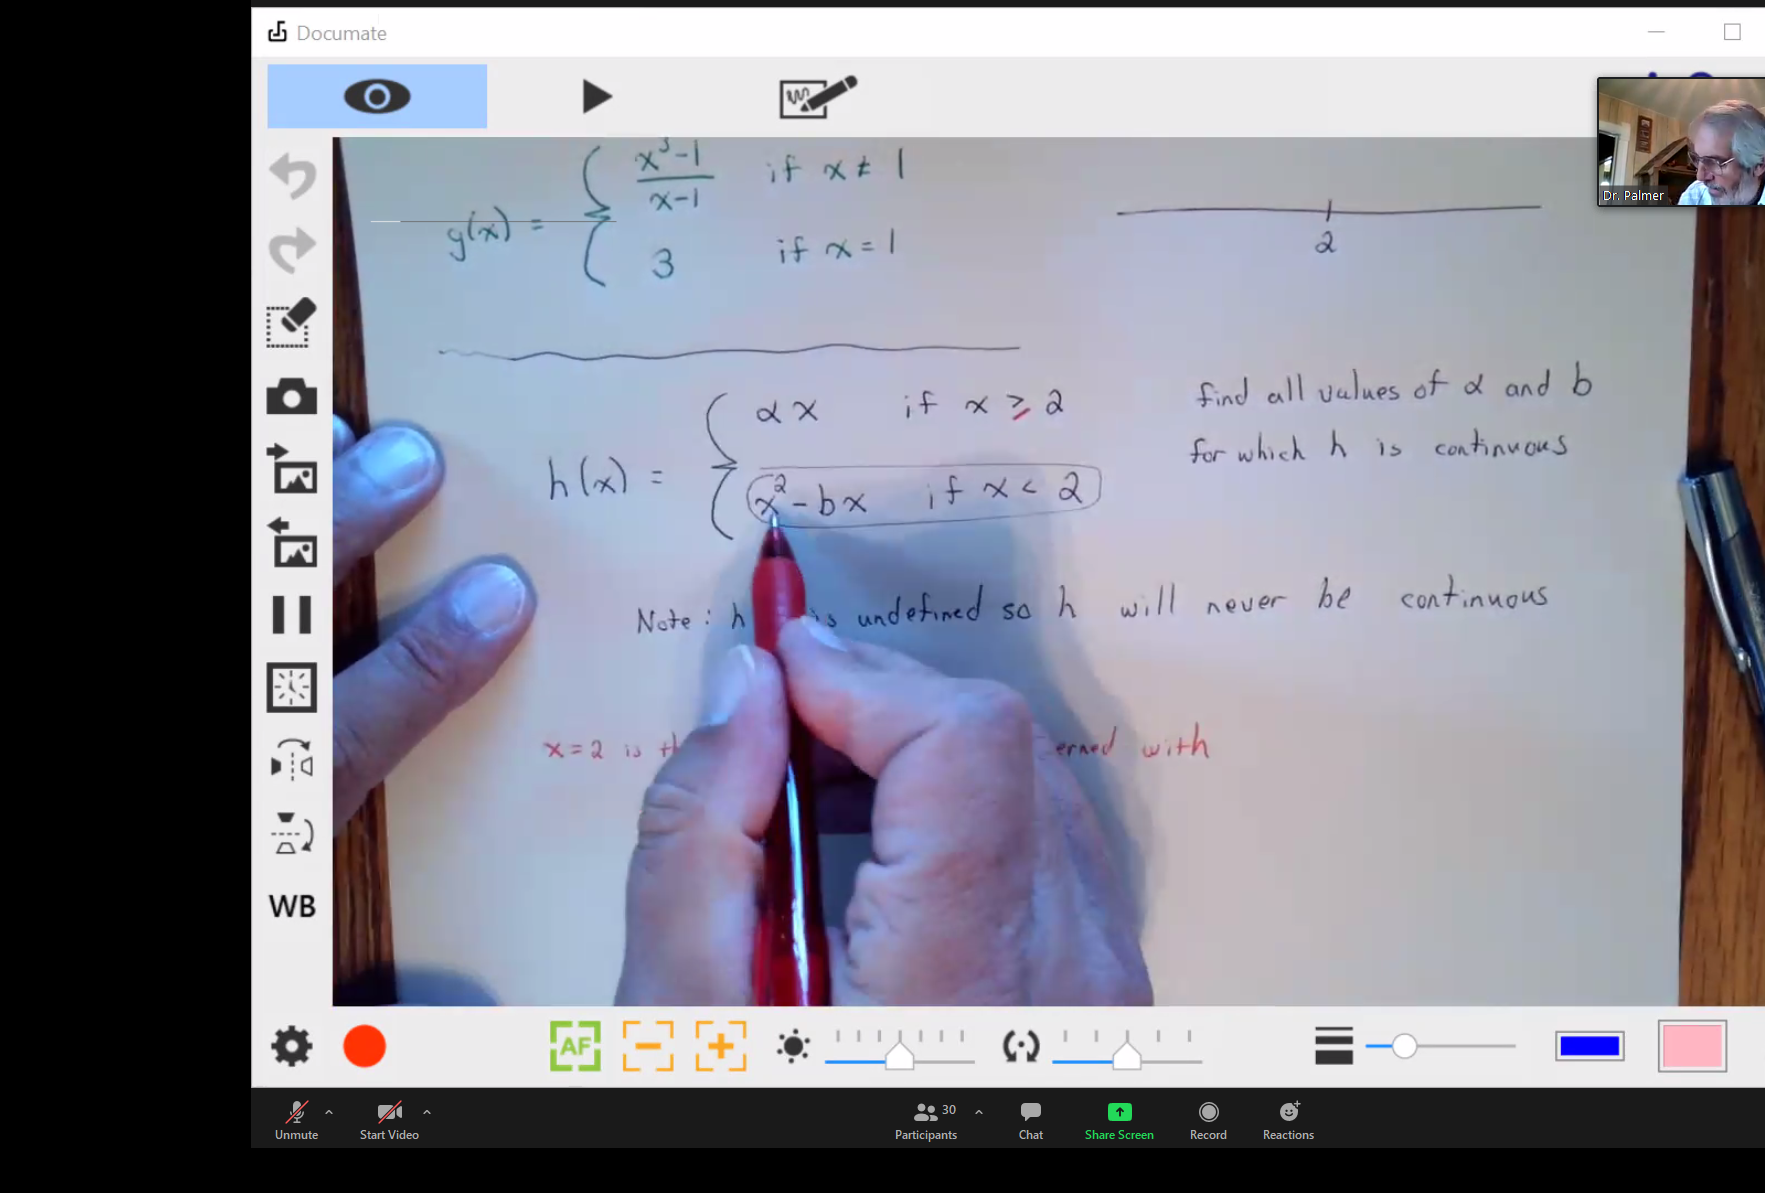 Documate
g(x) = { x³-1 / x-1 if x ≠ 1
3 if x = 1
2
Dr. Palmer
h(x) = { ax if x ≥ 2
x² - bx if x < 2
find all values of a and b
for which h is continuous
Note: h is undefined so h will never be continuous
x=2 is with
AF
WB
Unmute
Start Video
30
Participants
Chat
Share Screen
Record
Reactions